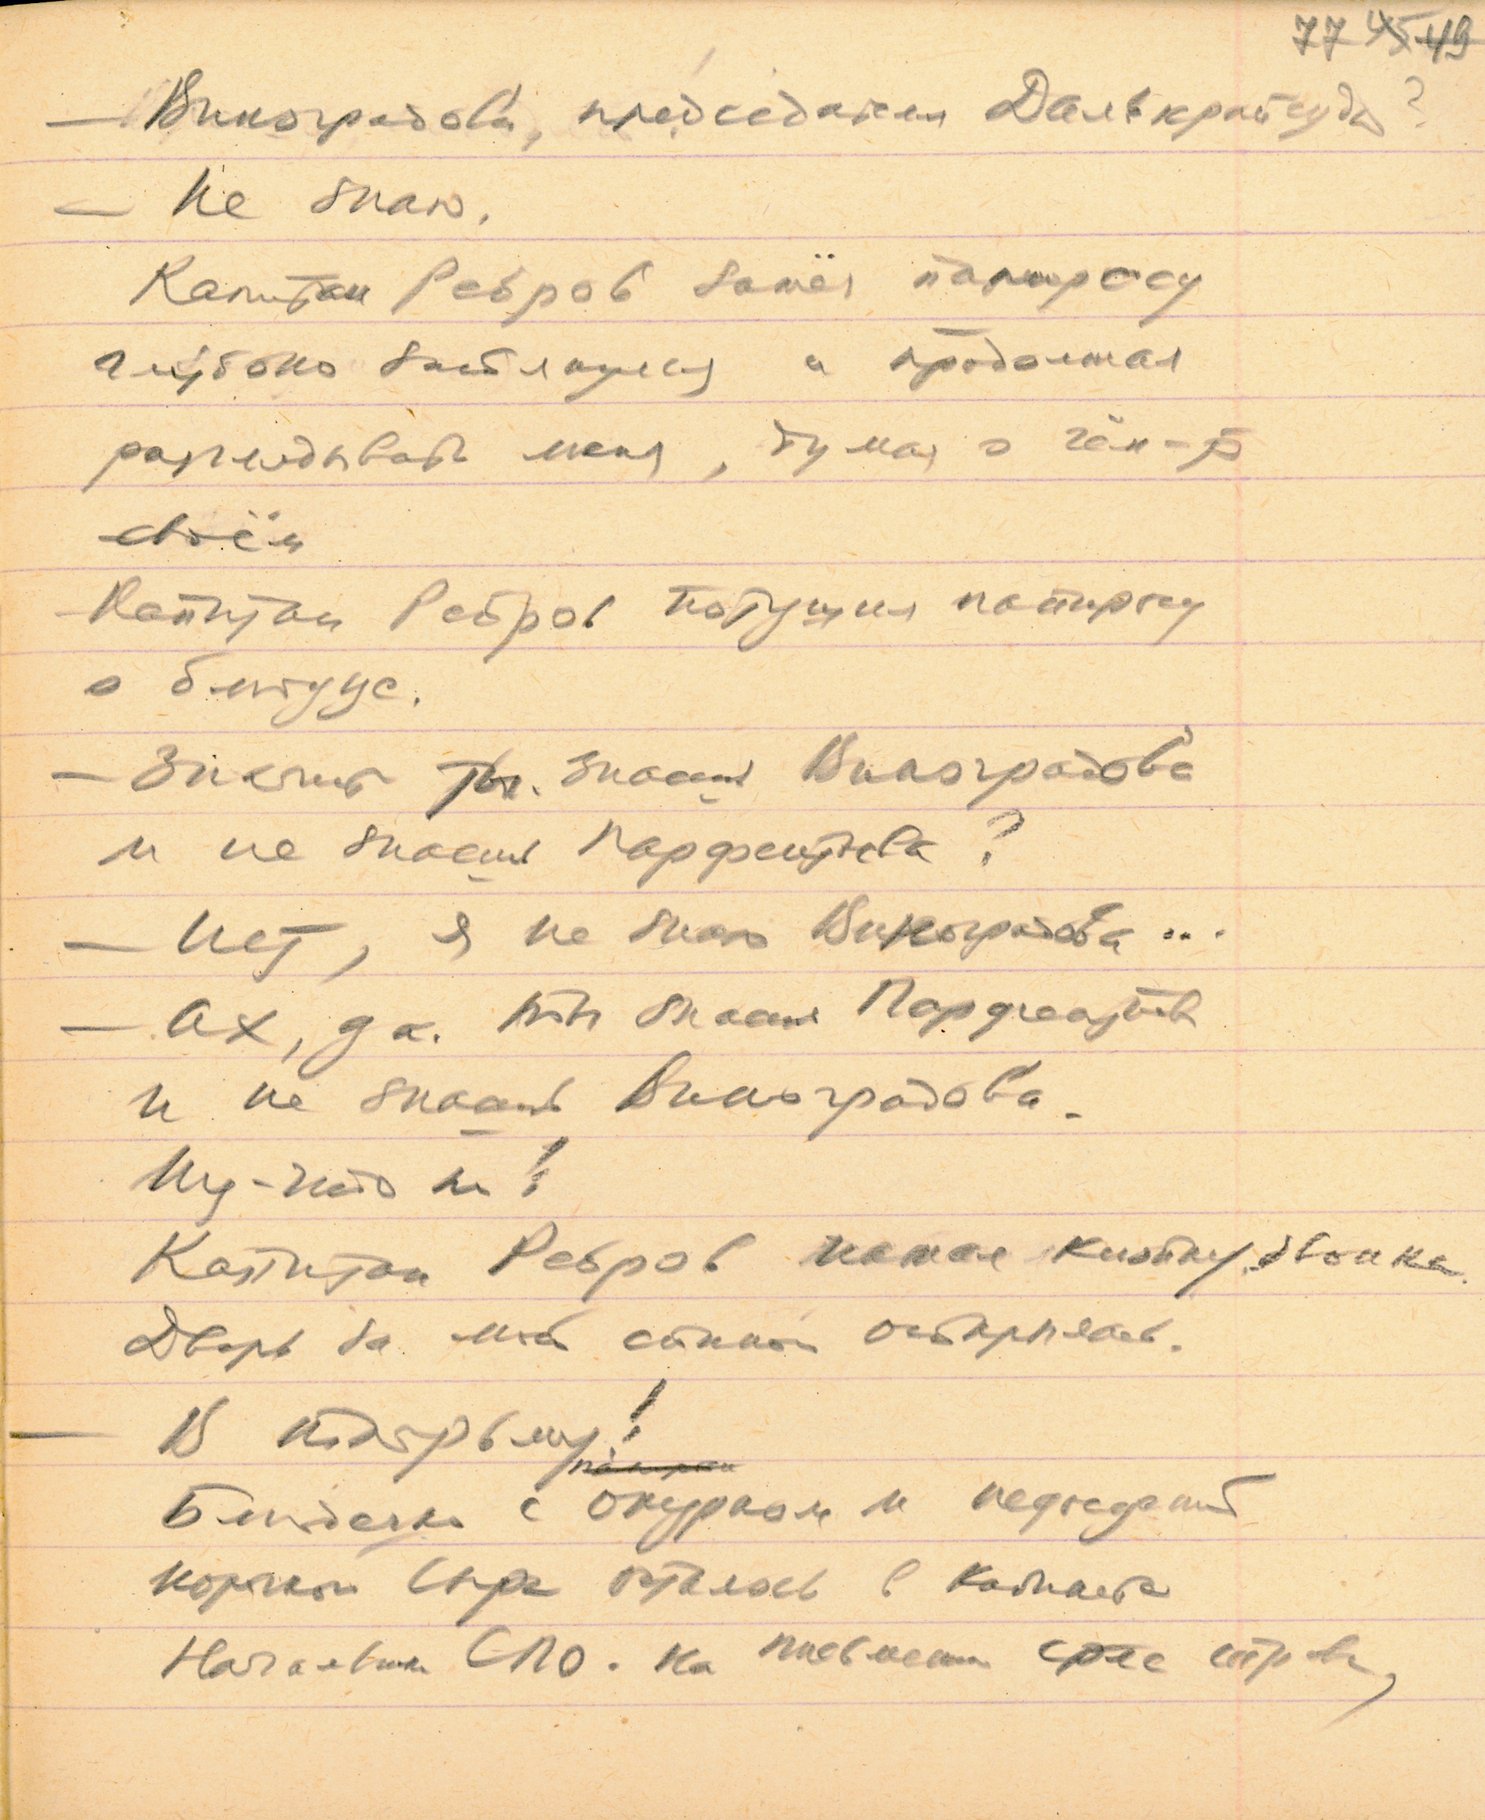 77 45 49
— Виноградова, председателя Далькрайсуда?
— Не знаю.
Капитан Ребров зажёг папиросу
глубоко затянулся и продолжал
разглядывать меня, думая о чём-то
своём
Капитан Ребров потушил папиросу
о блюдце.
— Значит ты знаешь Виноградова
и не знаешь Парфентьева?
— Нет, я не знаю Виноградова...
— Ах, да. Ты знаешь Парфентьева
и не знаешь Виноградова.
Ну-что ж!
Капитан Ребров нажал кнопку звонка.
Дверь за моей спиной открылась.
— В тюрьму!
Блюдечко с окурком и недоеденной
корочкой сыра осталось в кабинете
Начальника СПО. На письменном столе справа,